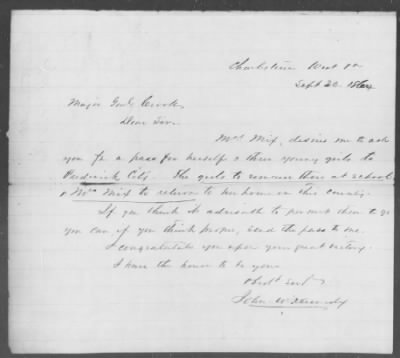 Charlestown West Va
Sept 22 1864
Major Genl Crook
Dear Sir
Mrs Mix, desires me to ask
you for a pass for herself & three young girls to
Frederick City. The girls to remain there at school
& Mrs Mix to return to her home in this county.
If you think it advisable to permit them to go
you can if you think proper, send the pass to me.
I congratulate you upon your great victory.
I have the honor to be your
Obedt Servt
John W Kennedy